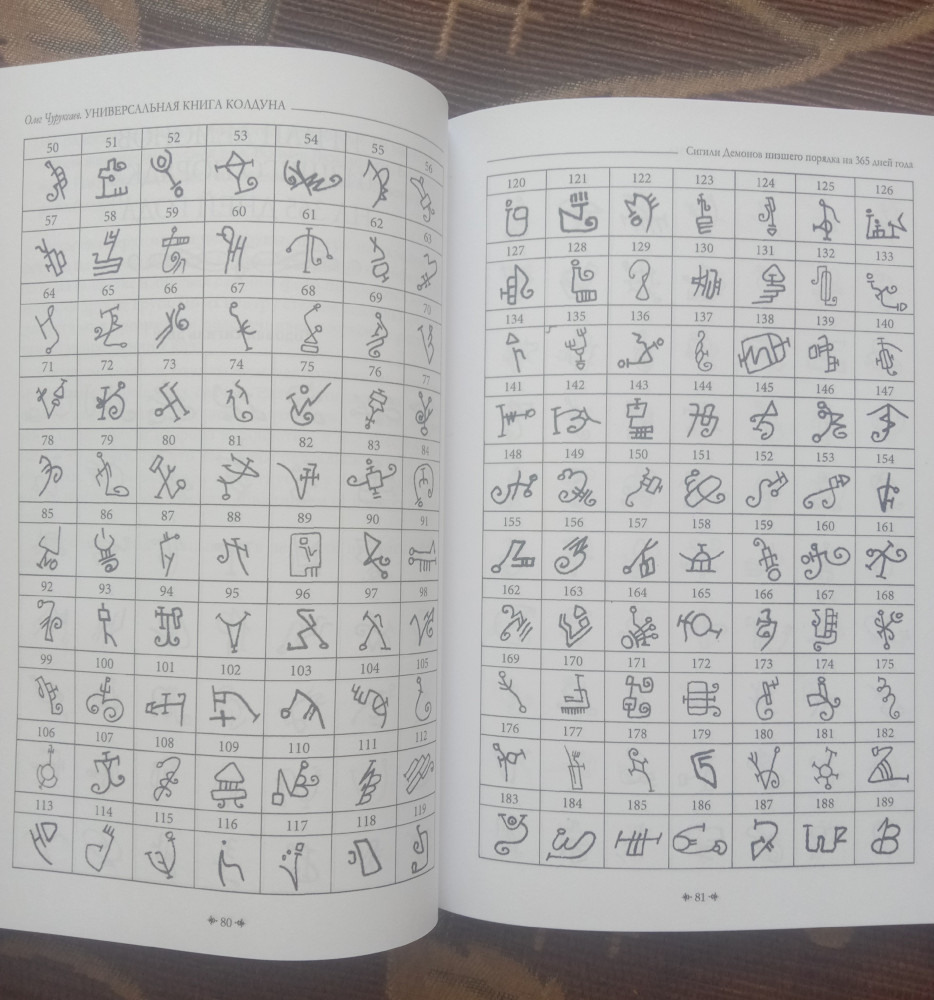 Олег Чурухин. УНИВЕРСАЛЬНАЯ КНИГА КОЛДУНА
50 51 52 53 54 55 56
57 58 59 60 61 62 63
64 65 66 67 68 69 70
71 72 73 74 75 76 77
78 79 80 81 82 83 84
85 86 87 88 89 90 91
92 93 94 95 96 97 98
99 100 101 102 103 104 105
106 107 108 109 110 111 112
113 114 115 116 117 118 119
80
Сигилы Демонов низшего порядка на 365 дней года
120 121 122 123 124 125 126
127 128 129 130 131 132 133
134 135 136 137 138 139 140
141 142 143 144 145 146 147
148 149 150 151 152 153 154
155 156 157 158 159 160 161
162 163 164 165 166 167 168
169 170 171 172 173 174 175
176 177 178 179 180 181 182
183 184 185 186 187 188 189
81